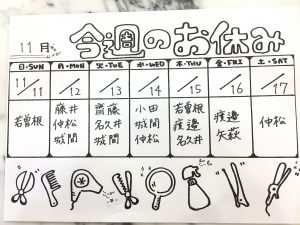 11月
今週のお休み
日・SUN 月・MON 火・TUE 水・WED 木・THU 金・FRI 土・SAT
11/11 /12 /13 /14 /15 /16 /17
若曽根 藤井 齋藤 小田 若曽根 渡邉 仲松
仲松 名久井 城間 渡邉 矢萩
城間 城間 仲松 名久井